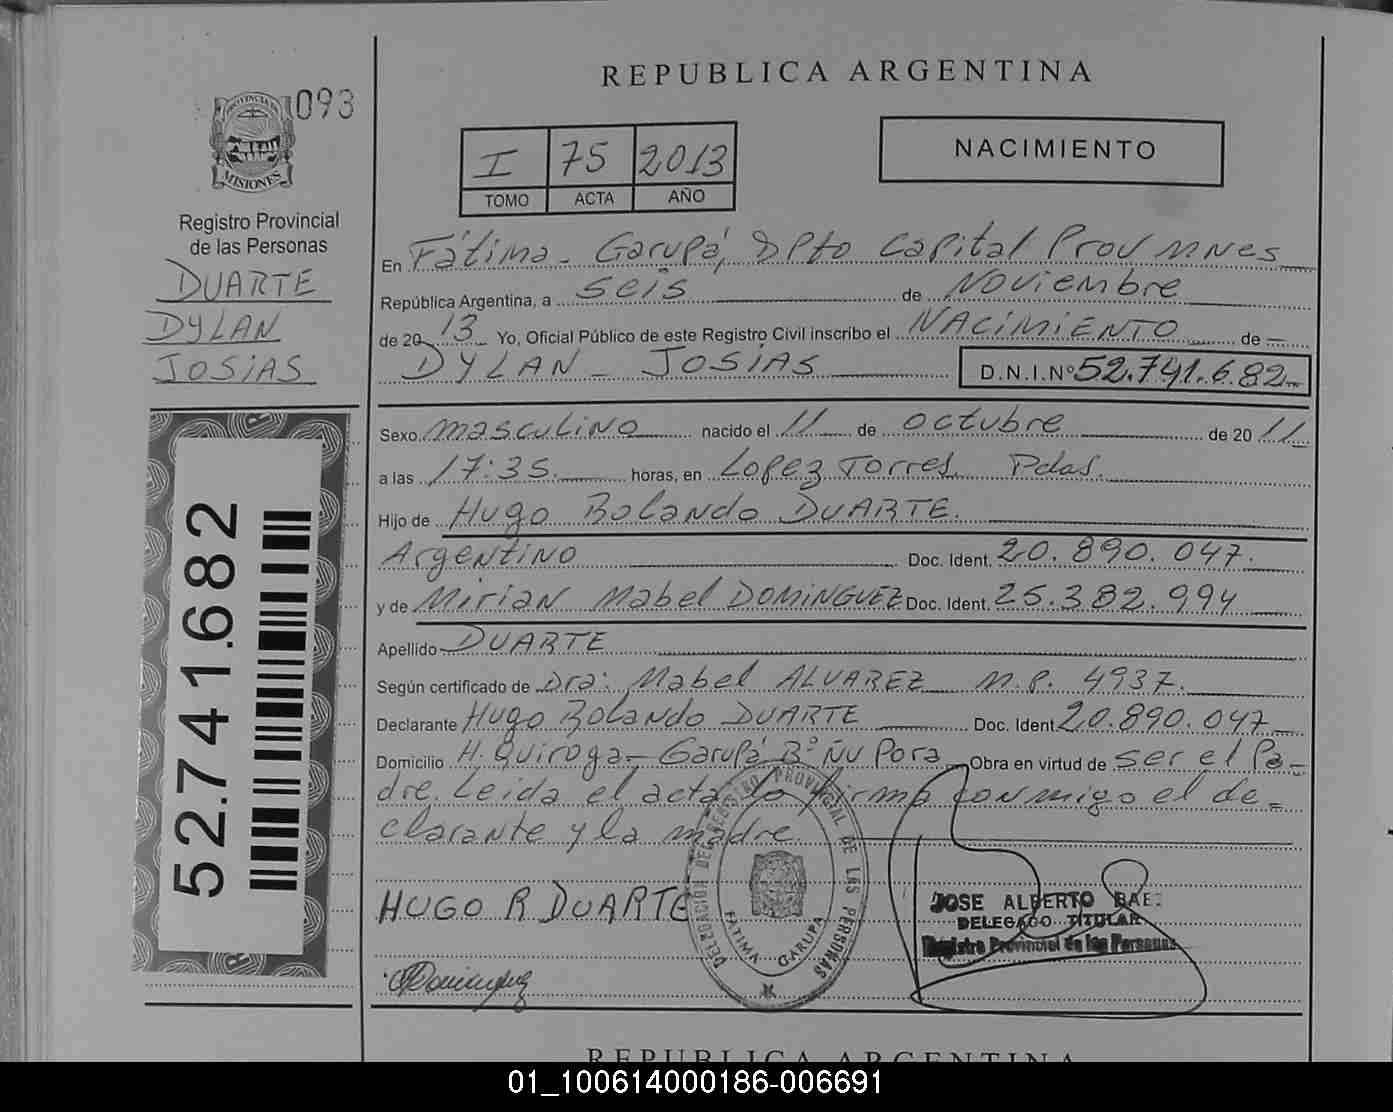 093
PROVINCIA DE
MISIONES
Registro Provincial
de las Personas
DUARTE
DYLAN
JOSIAS
52.741.682
REPUBLICA ARGENTINA
I 75 2013
TOMO ACTA AÑO
NACIMIENTO
En Fátima - Garupá, Dpto Capital Prov Mnes
República Argentina, a seis de Noviembre
de 20 13 Yo, Oficial Público de este Registro Civil inscribo el NACIMIENTO de
DYLAN - JOSIAS D.N.I.Nº 52.741.682
Sexo masculino nacido el 11 de octubre de 20 11
a las 17:35 horas, en Lopez Torres. Pdas.
Hijo de Hugo Rolando DUARTE.
Argentino Doc. Ident. 20.890.047.
y de Mirian Mabel DOMINGUEZ Doc. Ident. 25.382.994
Apellido DUARTE
Según certificado de Dra: Mabel ALVAREZ M.P. 4937.
Declarante Hugo Rolando DUARTE Doc. Ident 20.890.047
Domicilio H. Quiroga - Garupá Bº Ñu Pora Obra en virtud de ser el Pa-
dre. Leida el acta la firma conmigo el de-
clarante y la madre.
HUGO R DUARTE
DELEGACION DEL REGISTRO PROVINCIAL DE LAS PERSONAS
FATIMA GARUPA
JOSE ALBERTO BAE
DELEGADO TITULAR
Registro Provincial de las Personas
REPUBLICA ARGENTINA
01_100614000186-006691